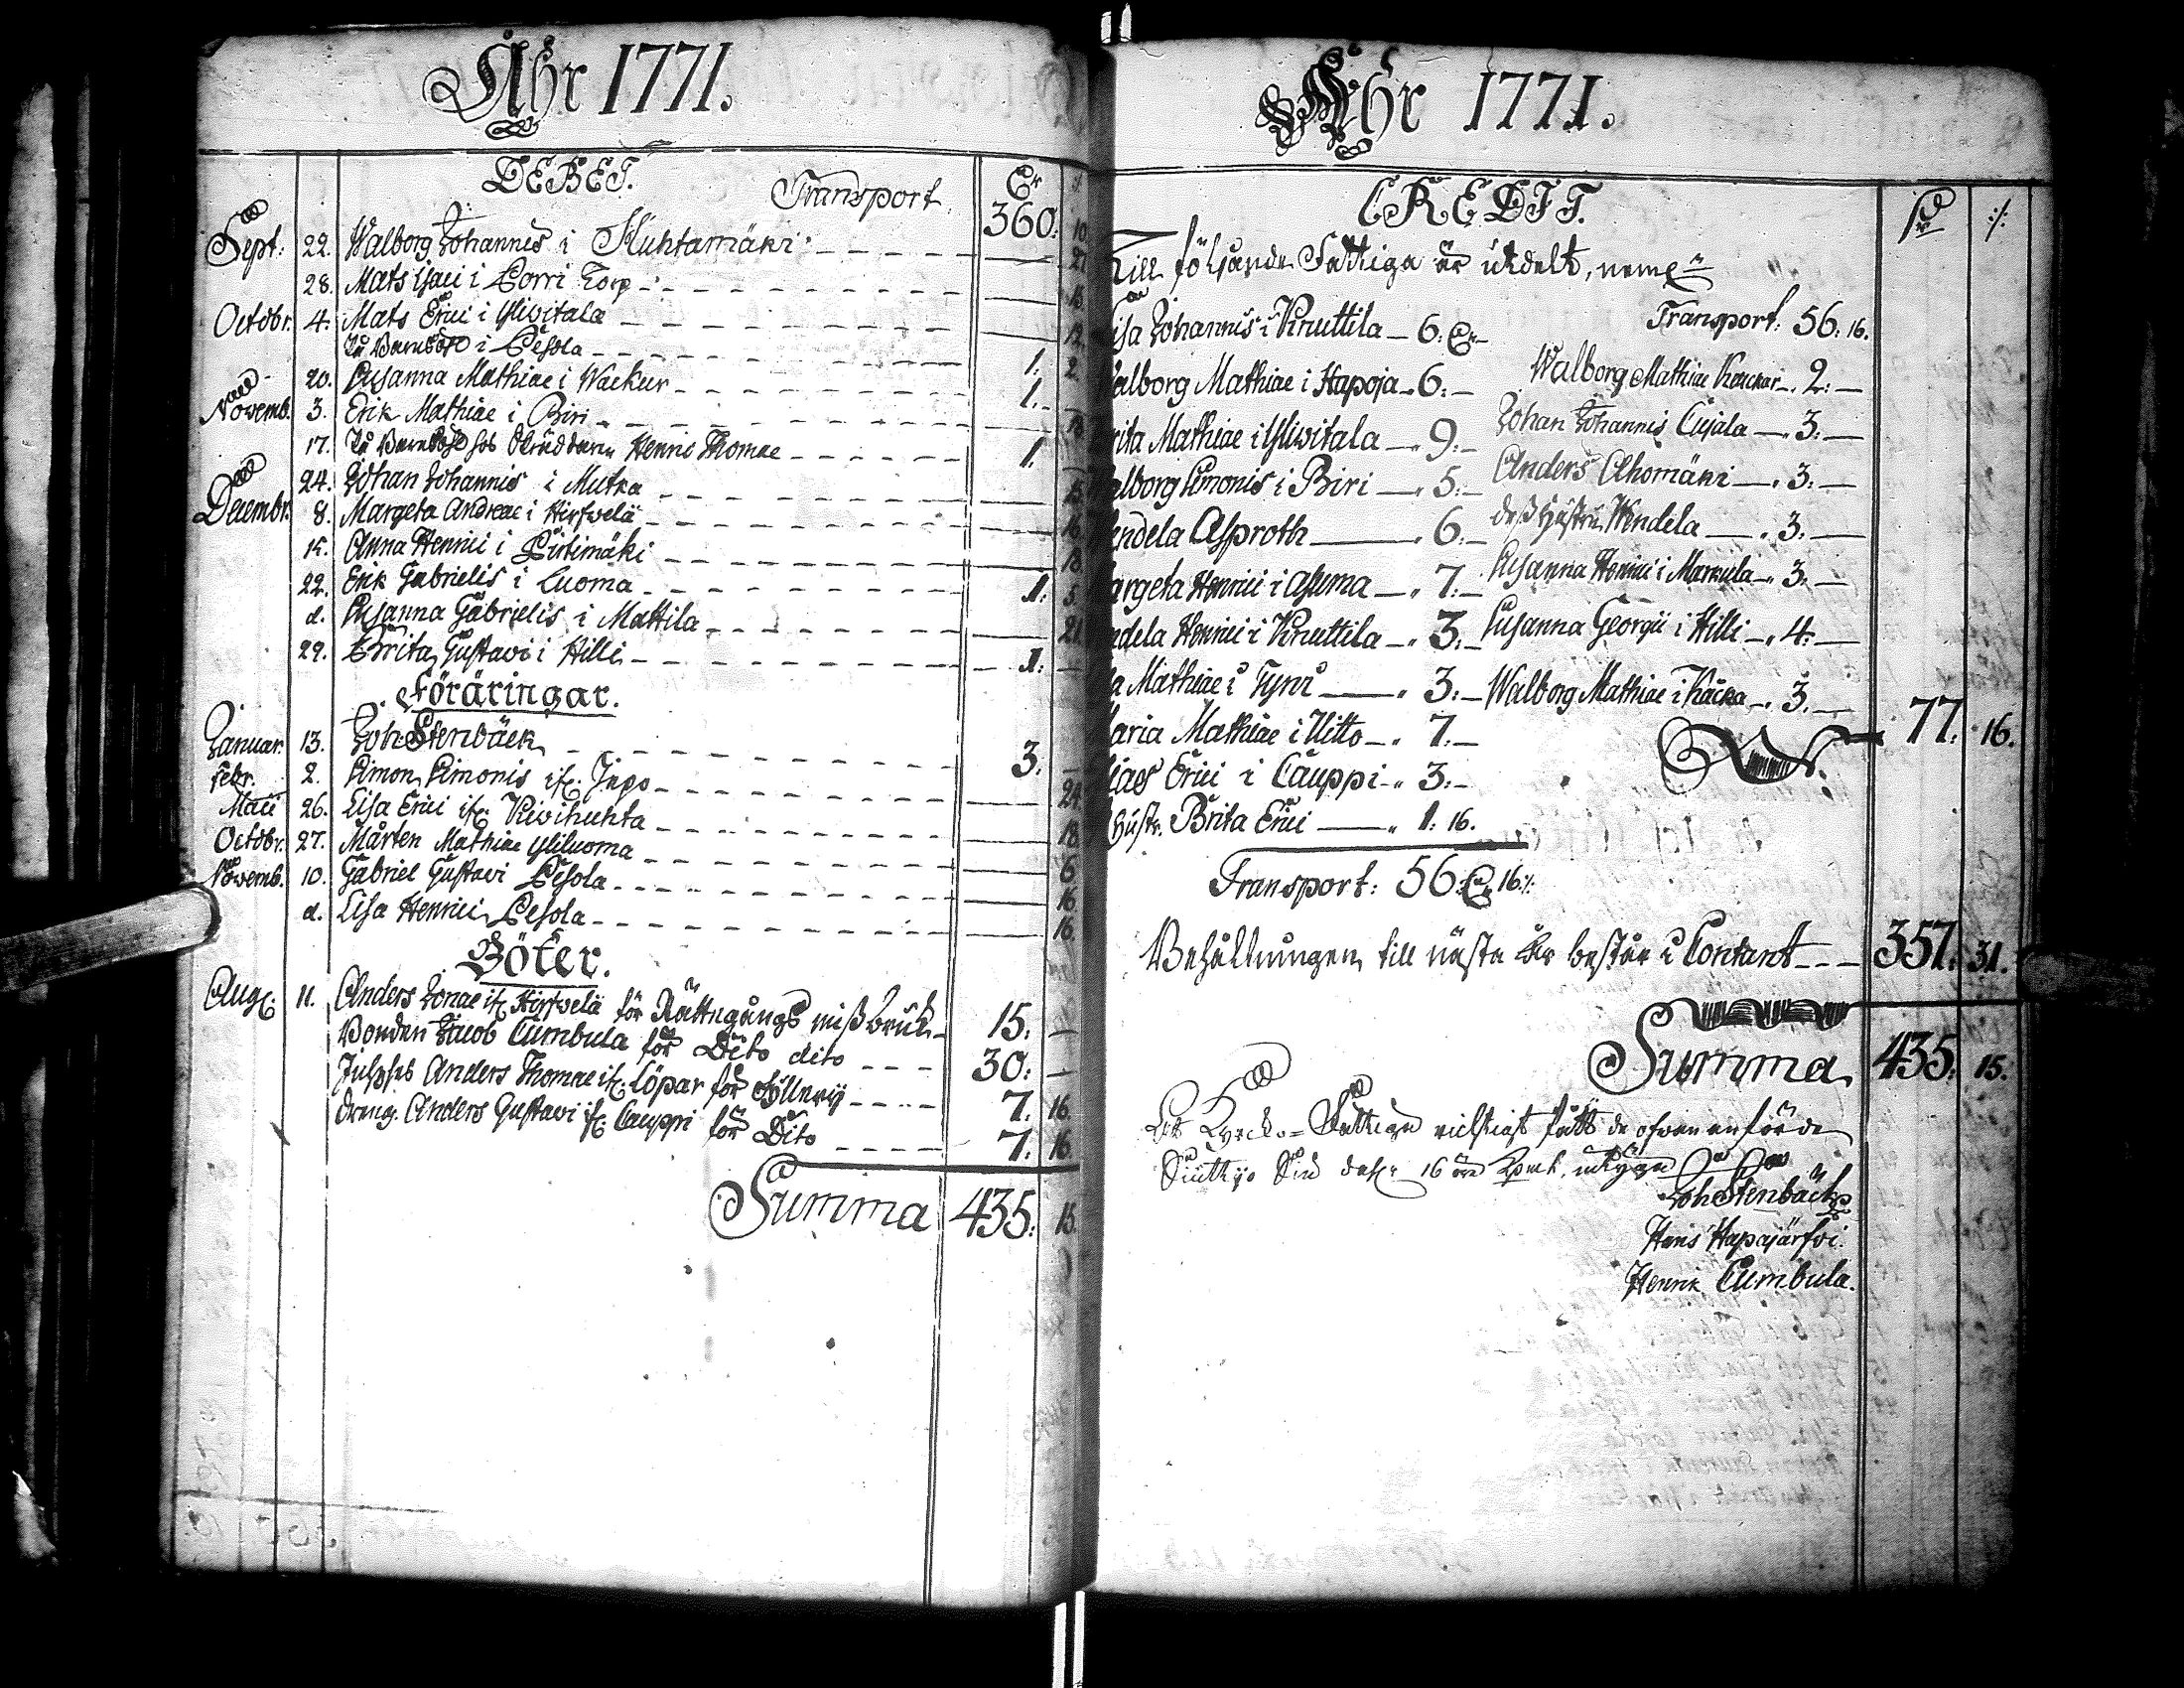 Åhr 1771.
DEBET. Transport. Cr
360: 10
Sept: 22. Walborg Johannis i Kuhtamäki 27
28. Mats Isaci i Porri Torp 15
Octobr. 4. Mats Erici i Yliwitala 12
På Barnsöhl i Pesola 1: 2
20. Susanna Mathiae i Wackur 1: —
Novemb. 3. Erik Mathiae i Biri 18
17. På Barnsöhl hos Henric Thomae 1: —
24. Johan Johannis i Mutka 15
Decembr. 8. Margeta Andreae i Hirfvelä 16
15. Anna Henrici i Pirtimäki 18
22. Erik Gabrielis i Luoma 1: 5
d. Susanna Gabrielis i Mattila 21
29. Brita Gustavi i Hilli 1: —
Föräringar.
Januar. 13. Joh Stenbäck 3: —
Febr. 2. Simon Simonis if: Inpo 24
Maii 26. Lisa Erici if: Kivihuhta 18
Octobr. 27. Mårten Mathiae Yliluoma 6
Novemb. 10. Gabriel Gustavi Pesola 16
d. Lisa Henrici Pesola 16
Böter.
Aug: 11. Anders Jonae if: Hirfvelä för Rättegångs missbruk 15: —
Bonden Jacob Cumbula för Dito dito 30: —
Inhyses Anders Thomae if: Löpar för Fylleri 7: 16
Dreng. Anders Gustavi if: Cauppi för Dito 7: 16
Summa 435: 15.
Åhr 1771.
CREDIT.
Till följande Fattiga är utdelt, neml:
isa Johannis i Knuttila — 6: Cr
alborg Mathiae i Hapoja — 6: —
rita Mathiae i Yliwitala — 9: —
alborg Simonis i Biri — 5: —
endela Asproth — 6: —
argeta Henrici i Asuma — 7: —
ndela Henrici i Knuttila — 3: —
a Mathiae i Tyni — 3: —
aria Mathiae i Uitto — 7: —
Erici i Cauppi — 3: —
hustr. Brita Erici — 1: 16.
Transport: 56: Cr 16
Transport: 56: 16.
Walborg Mathiae Kauckar — 2: —
Johan Johannis Cujala — 3: —
Anders Ahomäki — 3: —
dess hustru Wendela — 3: —
Susanna Henrici i Markula — 3: —
Susanna Georgii i Hilli — 4: —
Walborg Mathiae i Kacka — 3: —
77: 16.
Behållningen till nästa år består i Contant 357: 31.
Summa 435: 15.
Kyrck=Fattiga richtigt fått de ofvananförde
16 öre
Joh Stenbäck
Hapajärfvi
Henrik Cumbula.